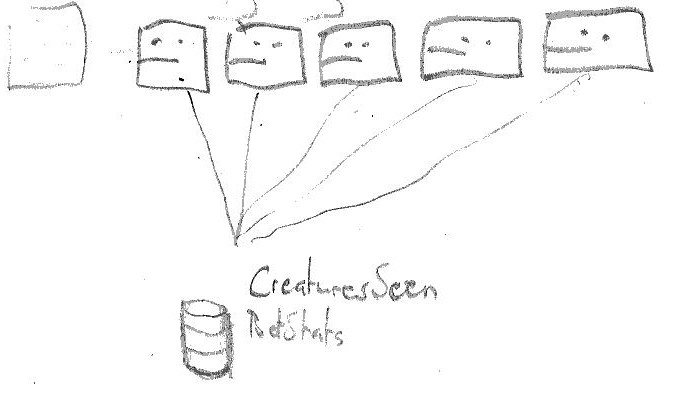 CreaturesSeen
BotStats